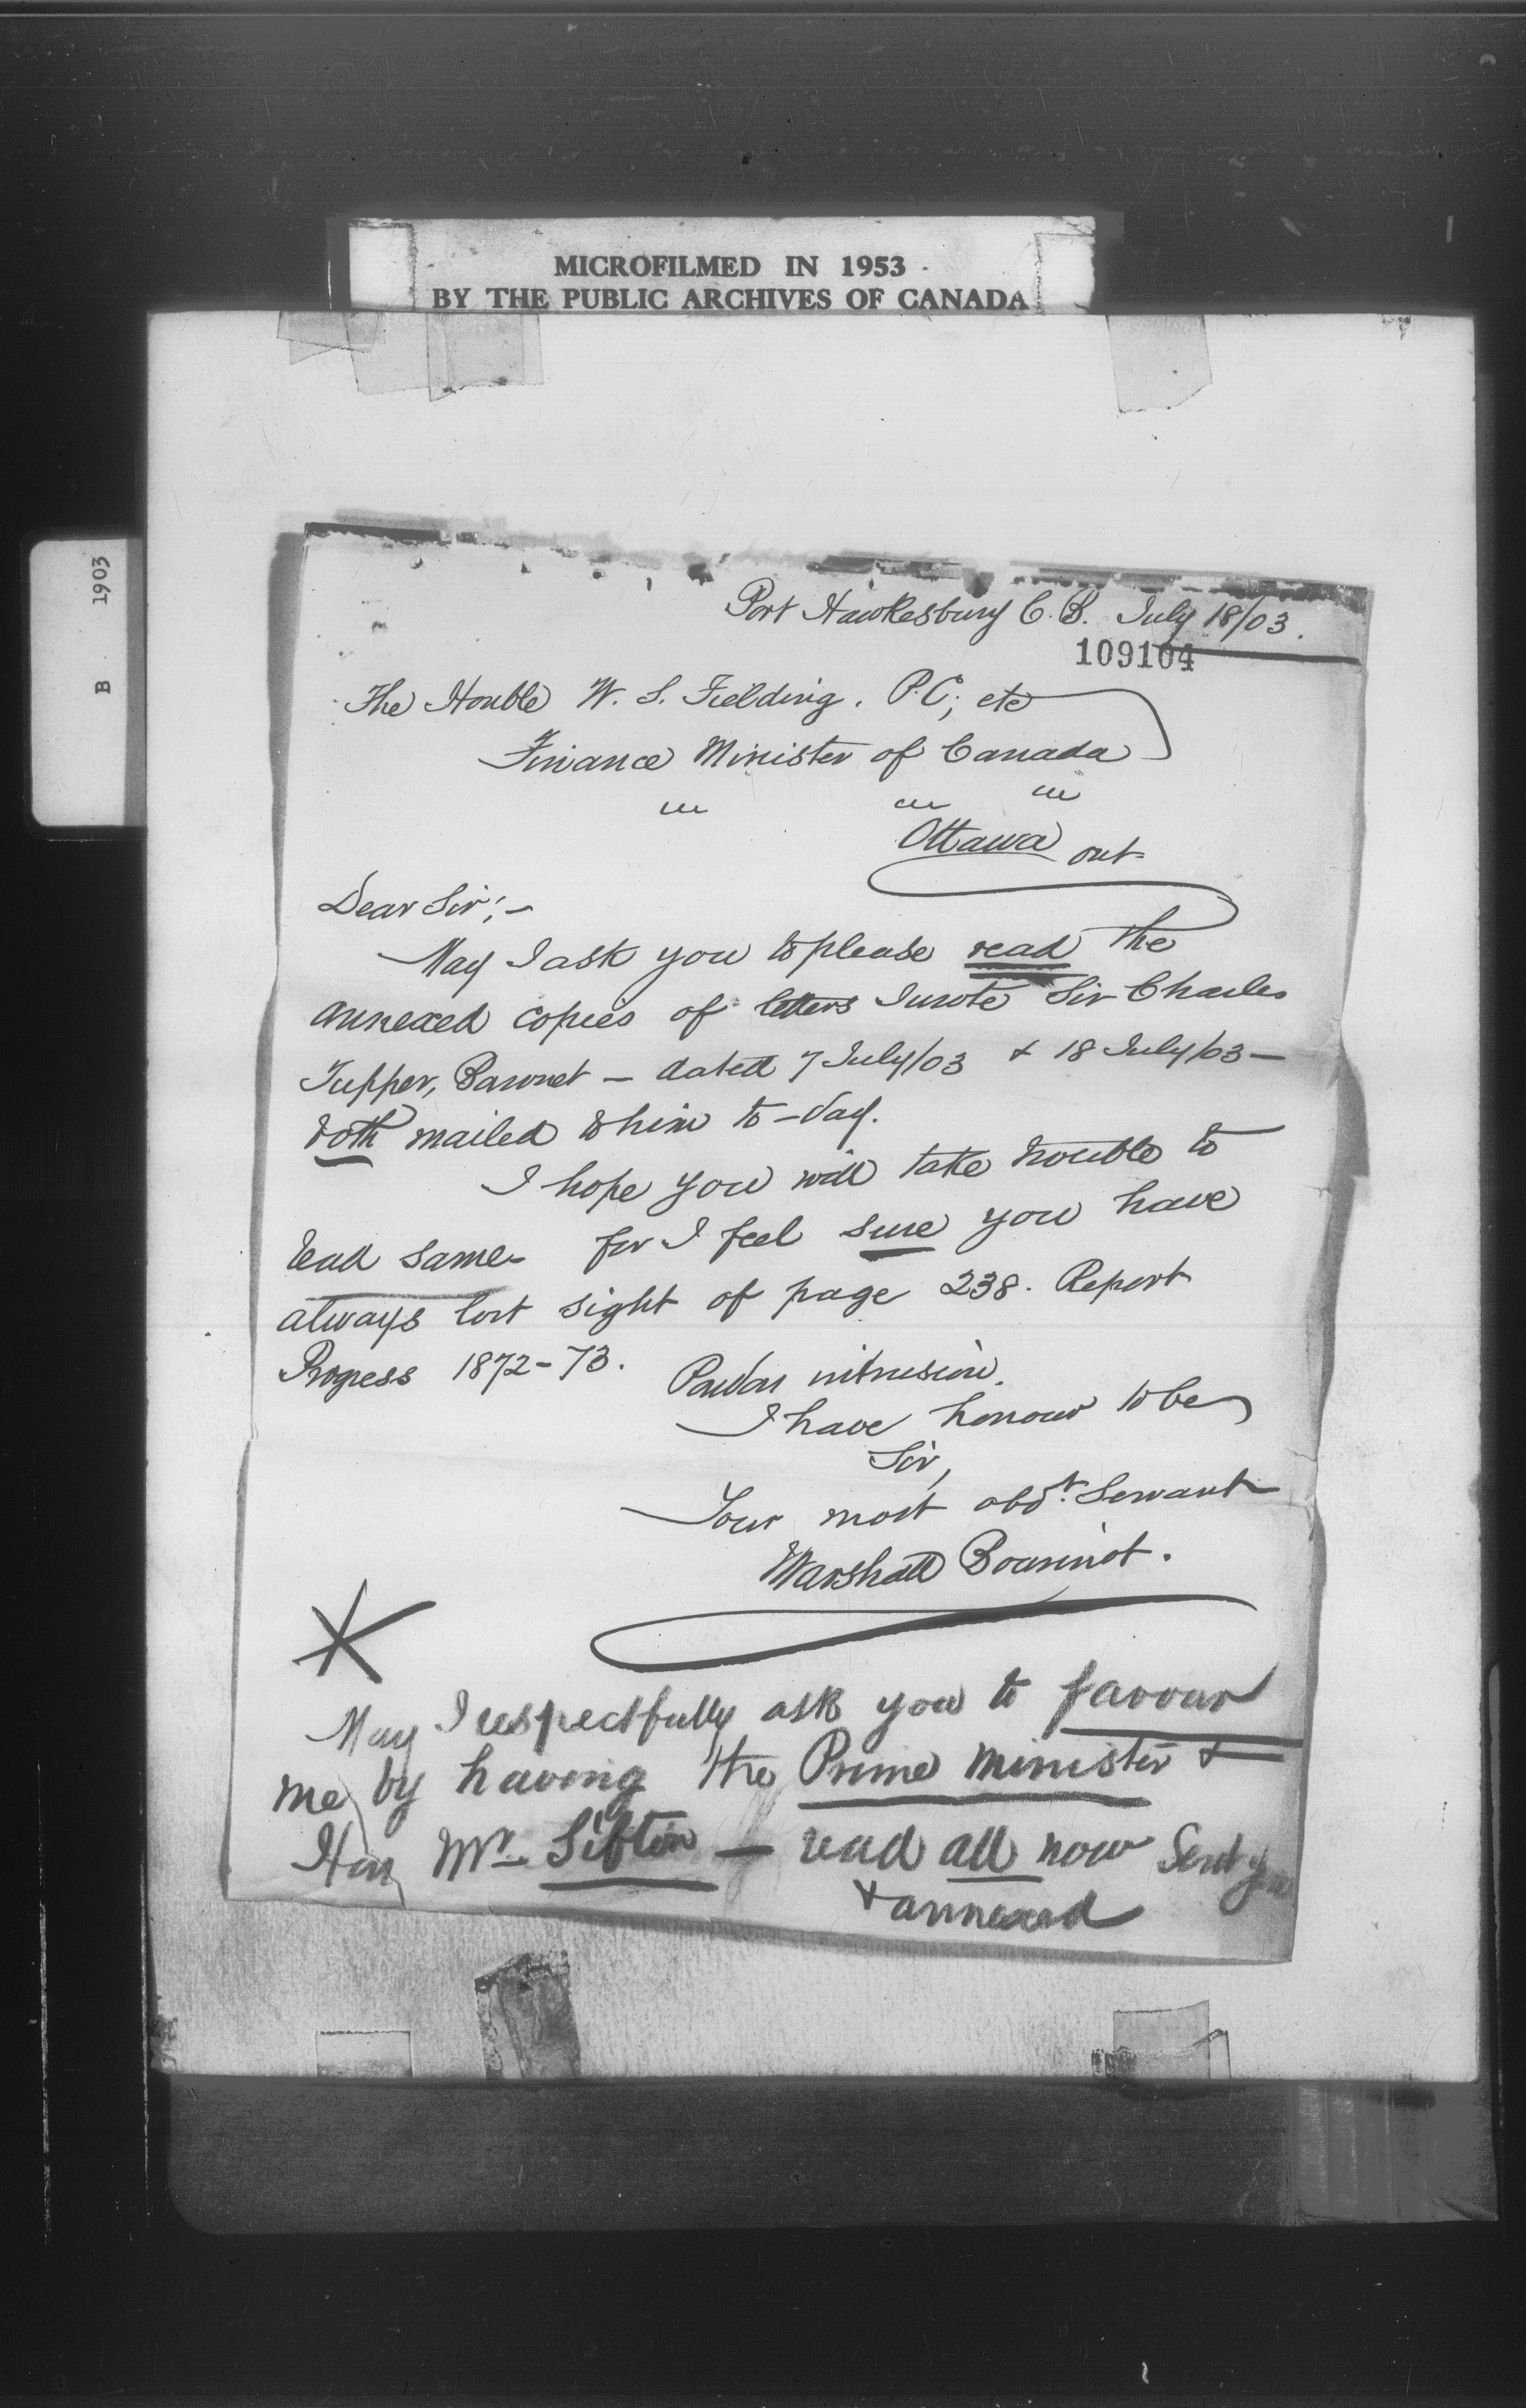 MICROFILMED IN 1953
BY THE PUBLIC ARCHIVES OF CANADA
B 1903
Port Hawkesbury C. B. July 18/03.
109104
The Honble W. S. Fielding. P.C; etc
Finance Minister of Canada
Ottawa Ont
Dear Sir;-
May I ask you to please read the
annexed copies of letters I wrote Sir Charles
Tupper, Baronet - dated 7 July/03 & 18 July/03 -
both mailed to him to-day.
I hope you will take trouble to
read same - for I feel sure you have
always lost sight of page 238. Report
Progess 1872-73.
Pardon intrusion.
I have honour to be
Sir,
Your most obdt. Servant
Marshall Bourinot.
May I respectfully ask you to favour
me by having the Prime Minister &
Hon Mr. Sifton - read all now Sent you
& annexed